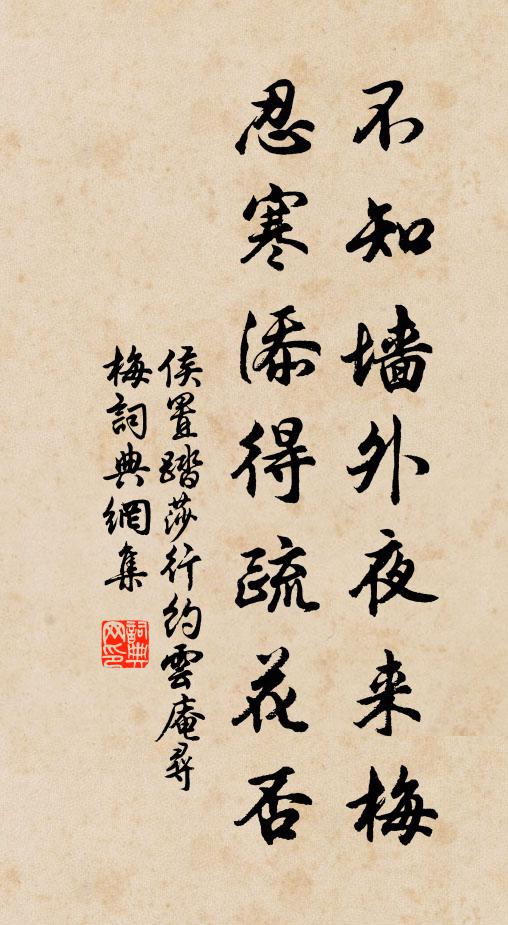 不知墙外夜来梅
忍寒添得疏花否
侯置踏莎行约雲庵尋
梅詞典網集
詞典
网印